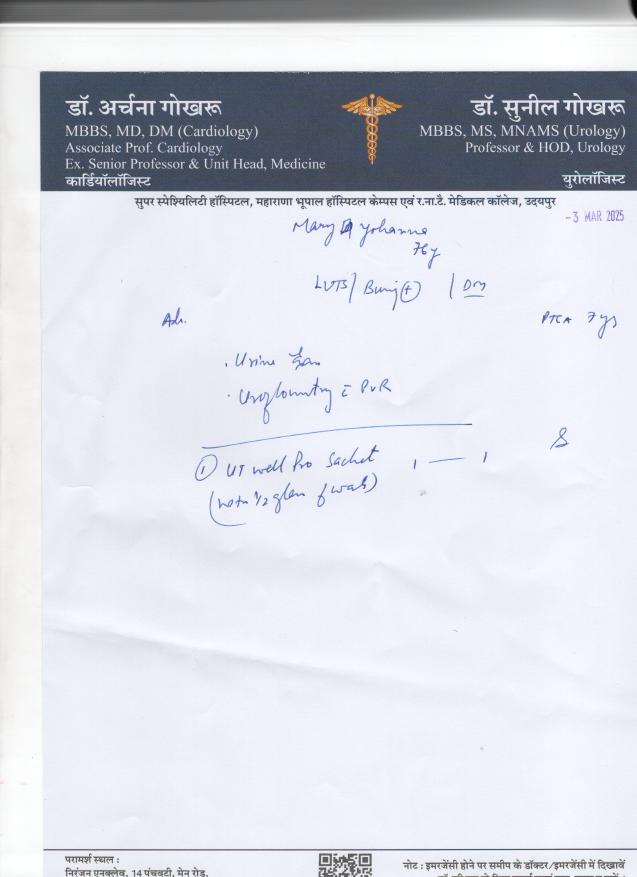 डॉ. अर्चना गोखरू
MBBS, MD, DM (Cardiology)
Associate Prof. Cardiology
Ex. Senior Professor & Unit Head, Medicine
कार्डियॉलॉजिस्ट
डॉ. सुनील गोखरू
MBBS, MS, MNAMS (Urology)
Professor & HOD, Urology
युरोलॉजिस्ट
सुपर स्पेश्यिलिटी हॉस्पिटल, महाराणा भूपाल हॉस्पिटल केम्पस एवं र.ना.टै. मेडिकल कॉलेज, उदयपुर
-3 MAR 2025
Mary
76y
LUTS/ (+) | DM
Adv. PTCA 7 ys
. Urine
. Uroflowmetry PVR
① UT well Pro Sachet 1 — 1
1/2
परामर्श स्थल :
निरंजन एनक्लेव, 14 पंचवटी, मेन रोड,
नोट : इमरजेंसी होने पर समीप के डॉक्टर/इमरजेंसी में दिखावें